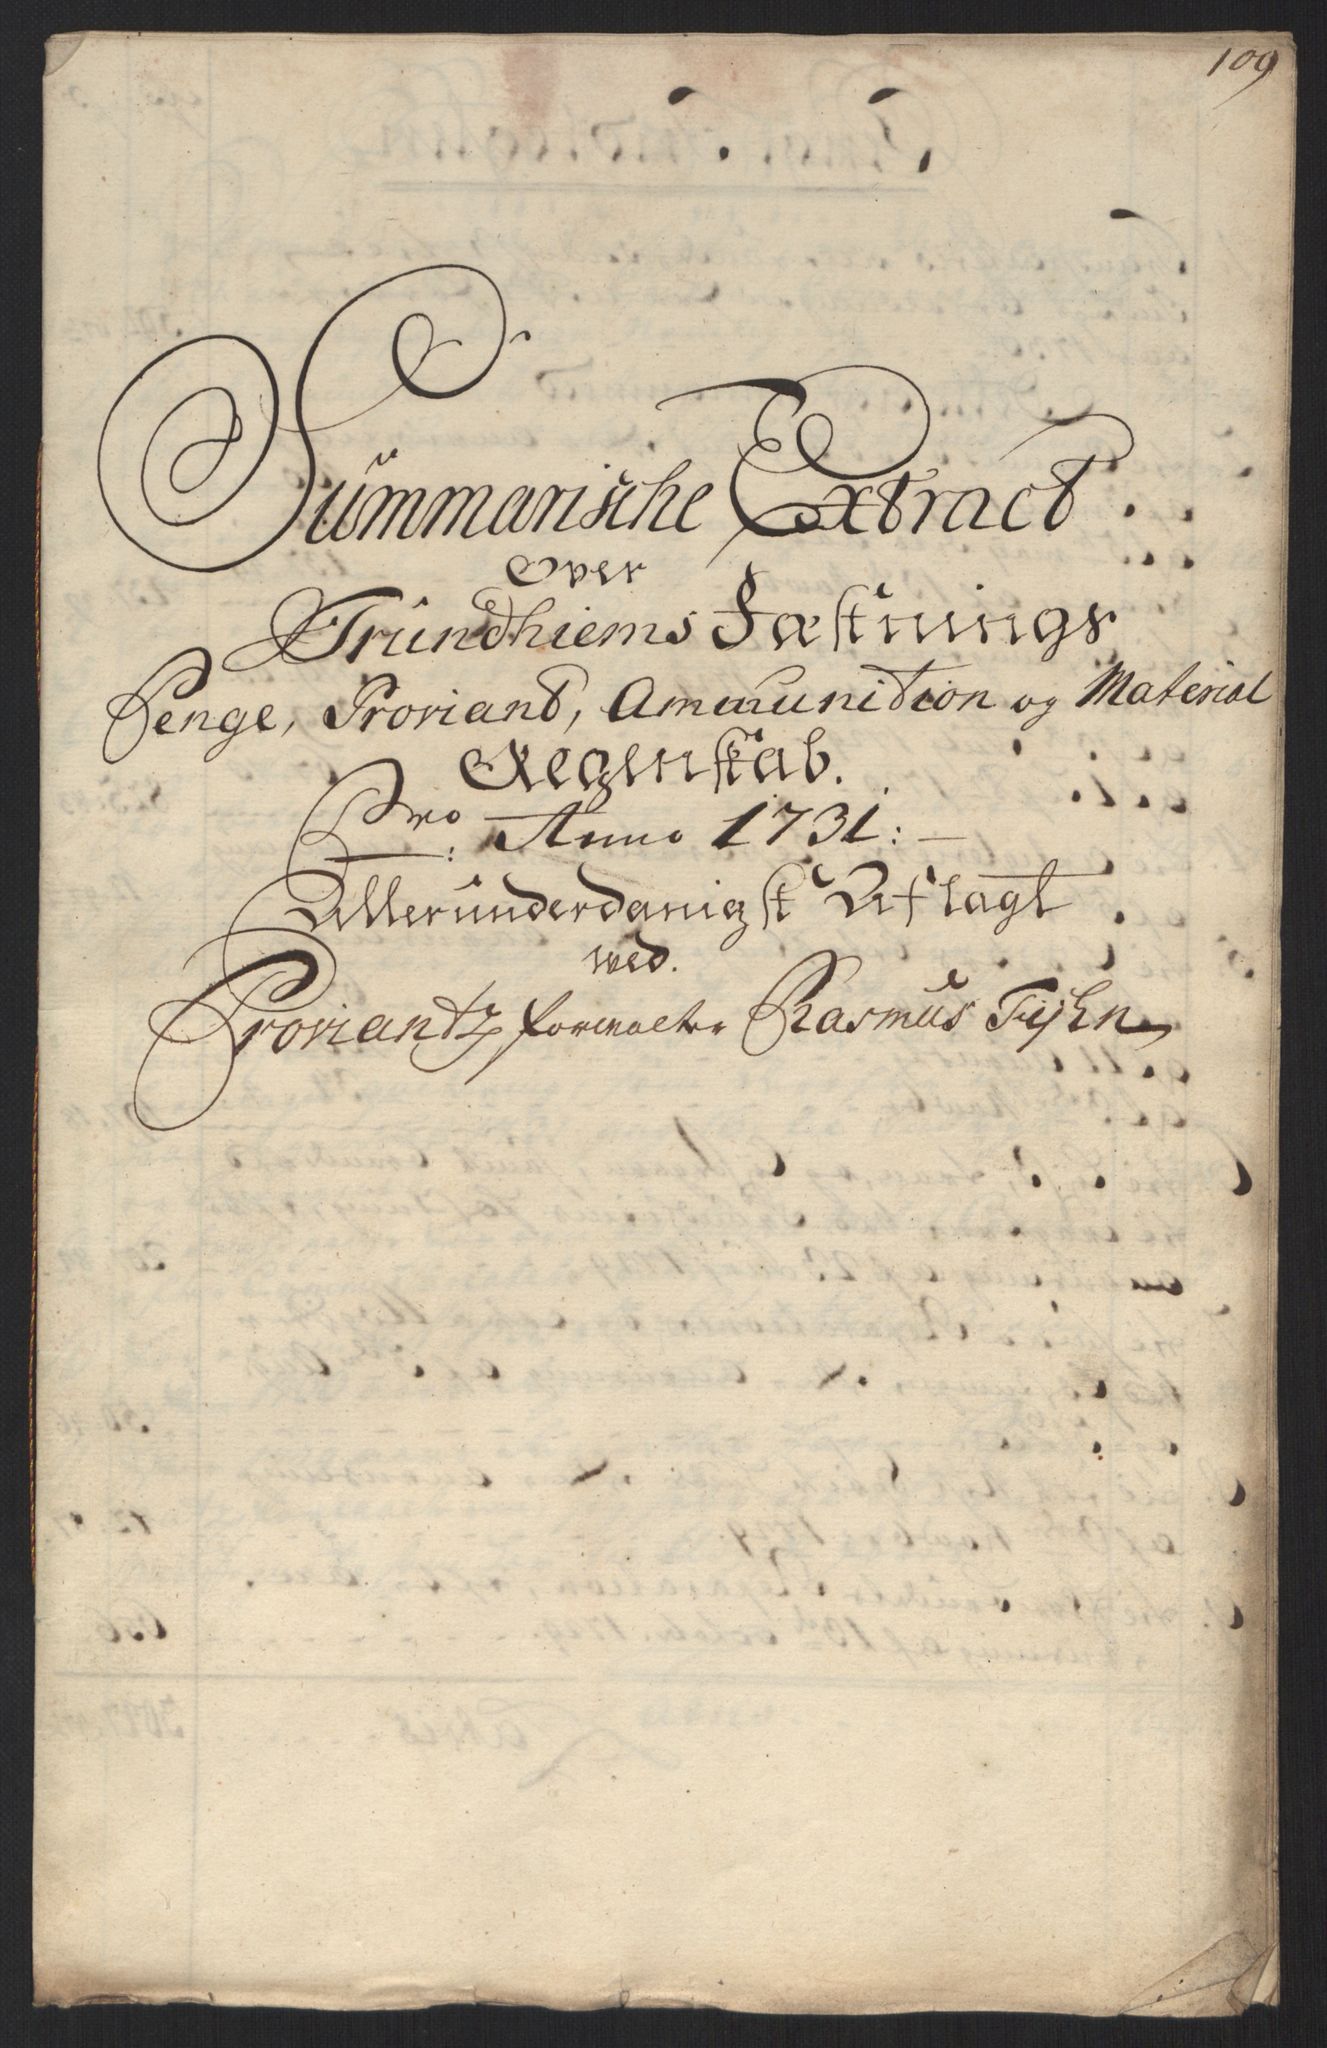 109
Summarische Extract
Over
Trundhiems Fæstnings
Penge, Proviant, Ammunition og Material
Regenskab.
Pro: Anno 1731:
Allerunderdanigst Aflagt
ved.
Proviantz forvalter Rasmus Tyhn